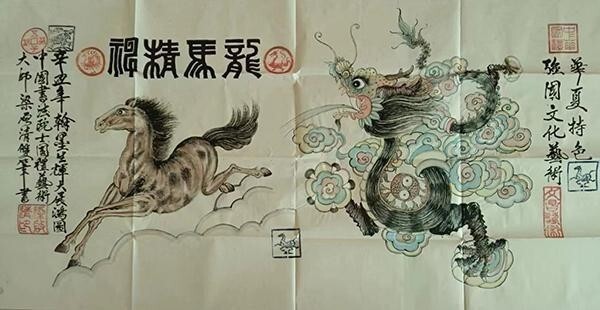 華夏特色
强國文化藝術
龍馬精神
辛丑年翰墨生輝大展鴻圖
中國書法院士國禮藝術
大师梁清書